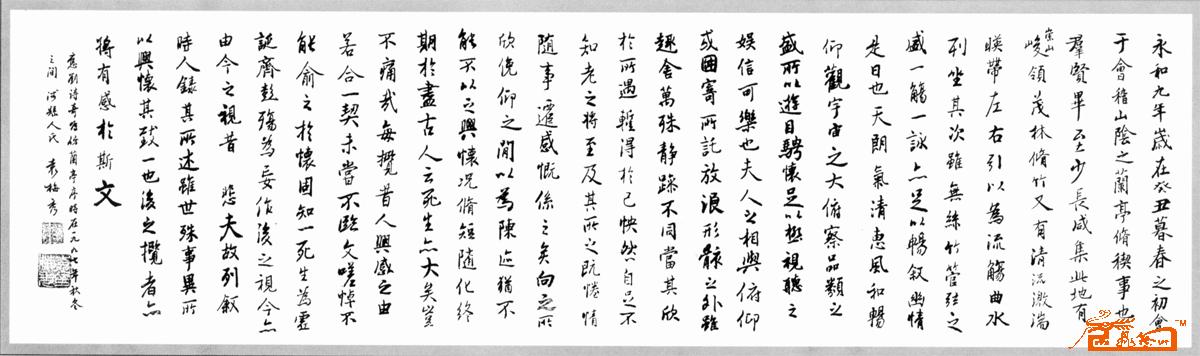 永和九年歲在癸丑暮春之初會
于會稽山陰之蘭亭脩稧事也
羣賢畢至少長咸集此地有
崇山
峻領茂林脩竹又有清流激湍
暎帶左右引以為流觴曲水
列坐其次雖無絲竹管弦之
盛一觴一詠亦足以暢叙幽情
是日也天朗氣清惠風和暢
仰觀宇宙之大俯察品類之
盛所以遊目騁懷足以極視聽之
娛信可樂也夫人之相與俯仰
或因寄所託放浪形骸之外雖
趣舍萬殊靜躁不同當其欣
於所遇暫得於己怏然自足不
知老之將至及其所之既惓情
隨事遷感慨係之矣向之所
欣俛仰之間以為陳迹猶不
能不以之興懷况脩短隨化終
期於盡古人云死生亦大矣豈
不痛哉每攬昔人興感之由
若合一契未嘗不臨文嗟悼不
能喻之於懷固知一死生為虛
誕齊彭殤為妄作後之視今亦
由今之視昔 悲夫故列叙
時人錄其所述雖世殊事異所
以興懷其致一也後之攬者亦
將有感於斯文
蘭亭序時在一九八七年秋冬
之間 人氏